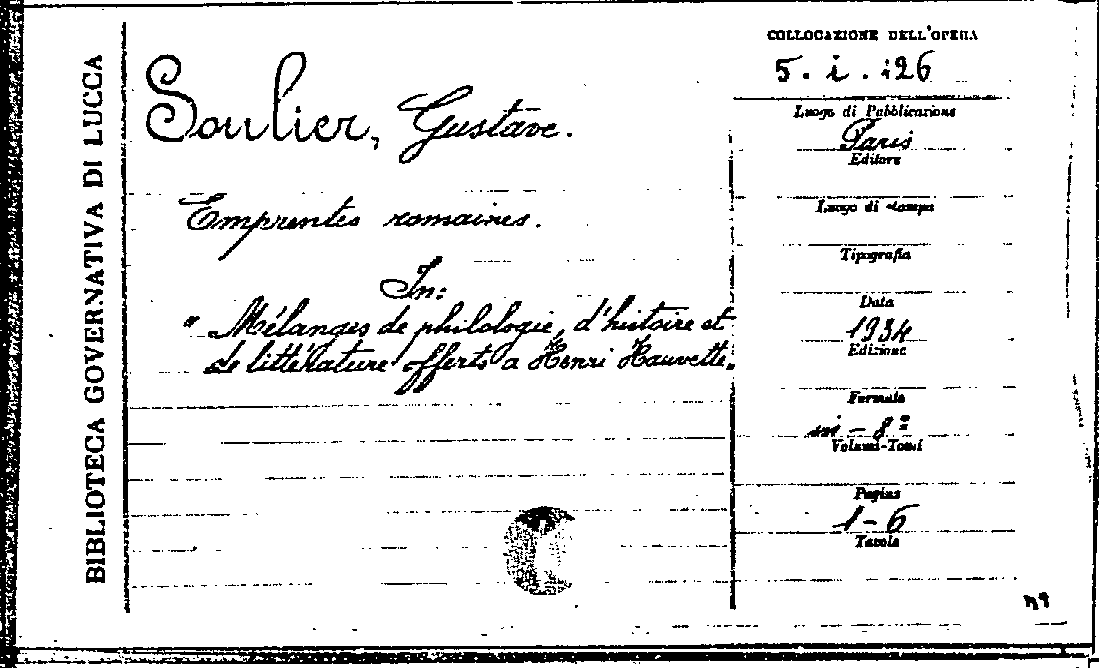 BIBLIOTECA GOVERNATIVA DI LUCCA
Soulier, Gustave.
Emprentes romaines.
In:
" Mélanges de philologie, d'histoire et
de littérature offerts a Henri Hauvette.
COLLOCAZIONE DELL'OPERA
5. i. i26
Luogo di Pubblicazione
Paris
Editore
Luogo di stampa
Tipografia
Data
1934
Edizione
Formato
in-8º
Volumi-Tomi
Pagine
1-6
Tavole